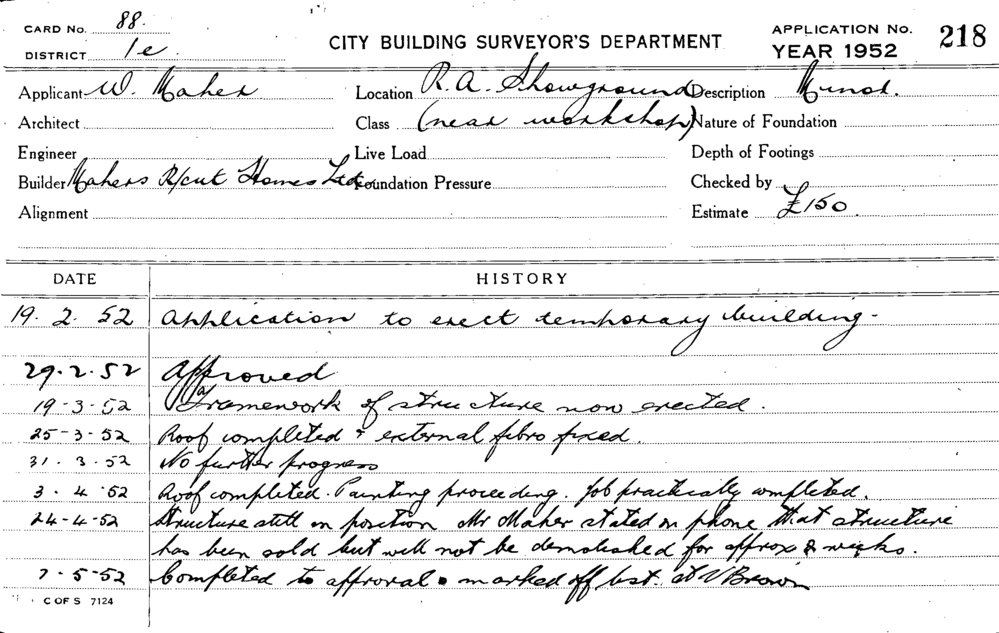 CARD NO. 88.
DISTRICT 1e
CITY BUILDING SURVEYOR'S DEPARTMENT
APPLICATION NO. 218
YEAR 1952
Applicant W. Maher Location R. A. Showground Description Minor.
Architect Class (near workshop) Nature of Foundation
Engineer Live Load Depth of Footings
Builder Mahers R/cut Homes Ltd. Foundation Pressure Checked by
Alignment Estimate £150.
DATE HISTORY
19. 2. 52 Application to erect temporary building-
29.2.52 Approved
19-3-52 Framework of structure now erected.
25-3-52 Roof completed & external fibro fixed.
31.3.52 No further progress
3. 4. 52 Roof completed. Painting proceeding. Job practically completed.
24-4-52 Structure still in position Mr Maher stated on phone that structure
has been sold but will not be demolished for approx weeks.
7-5-52 Completed to approval marked off list. Brown
C OF S 7124